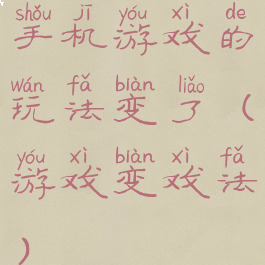 shǒu jī yóu xì de
手机游戏的
wán fǎ biàn liǎo
玩法变了(
yóu xì biàn xì fǎ
游戏变戏法
)